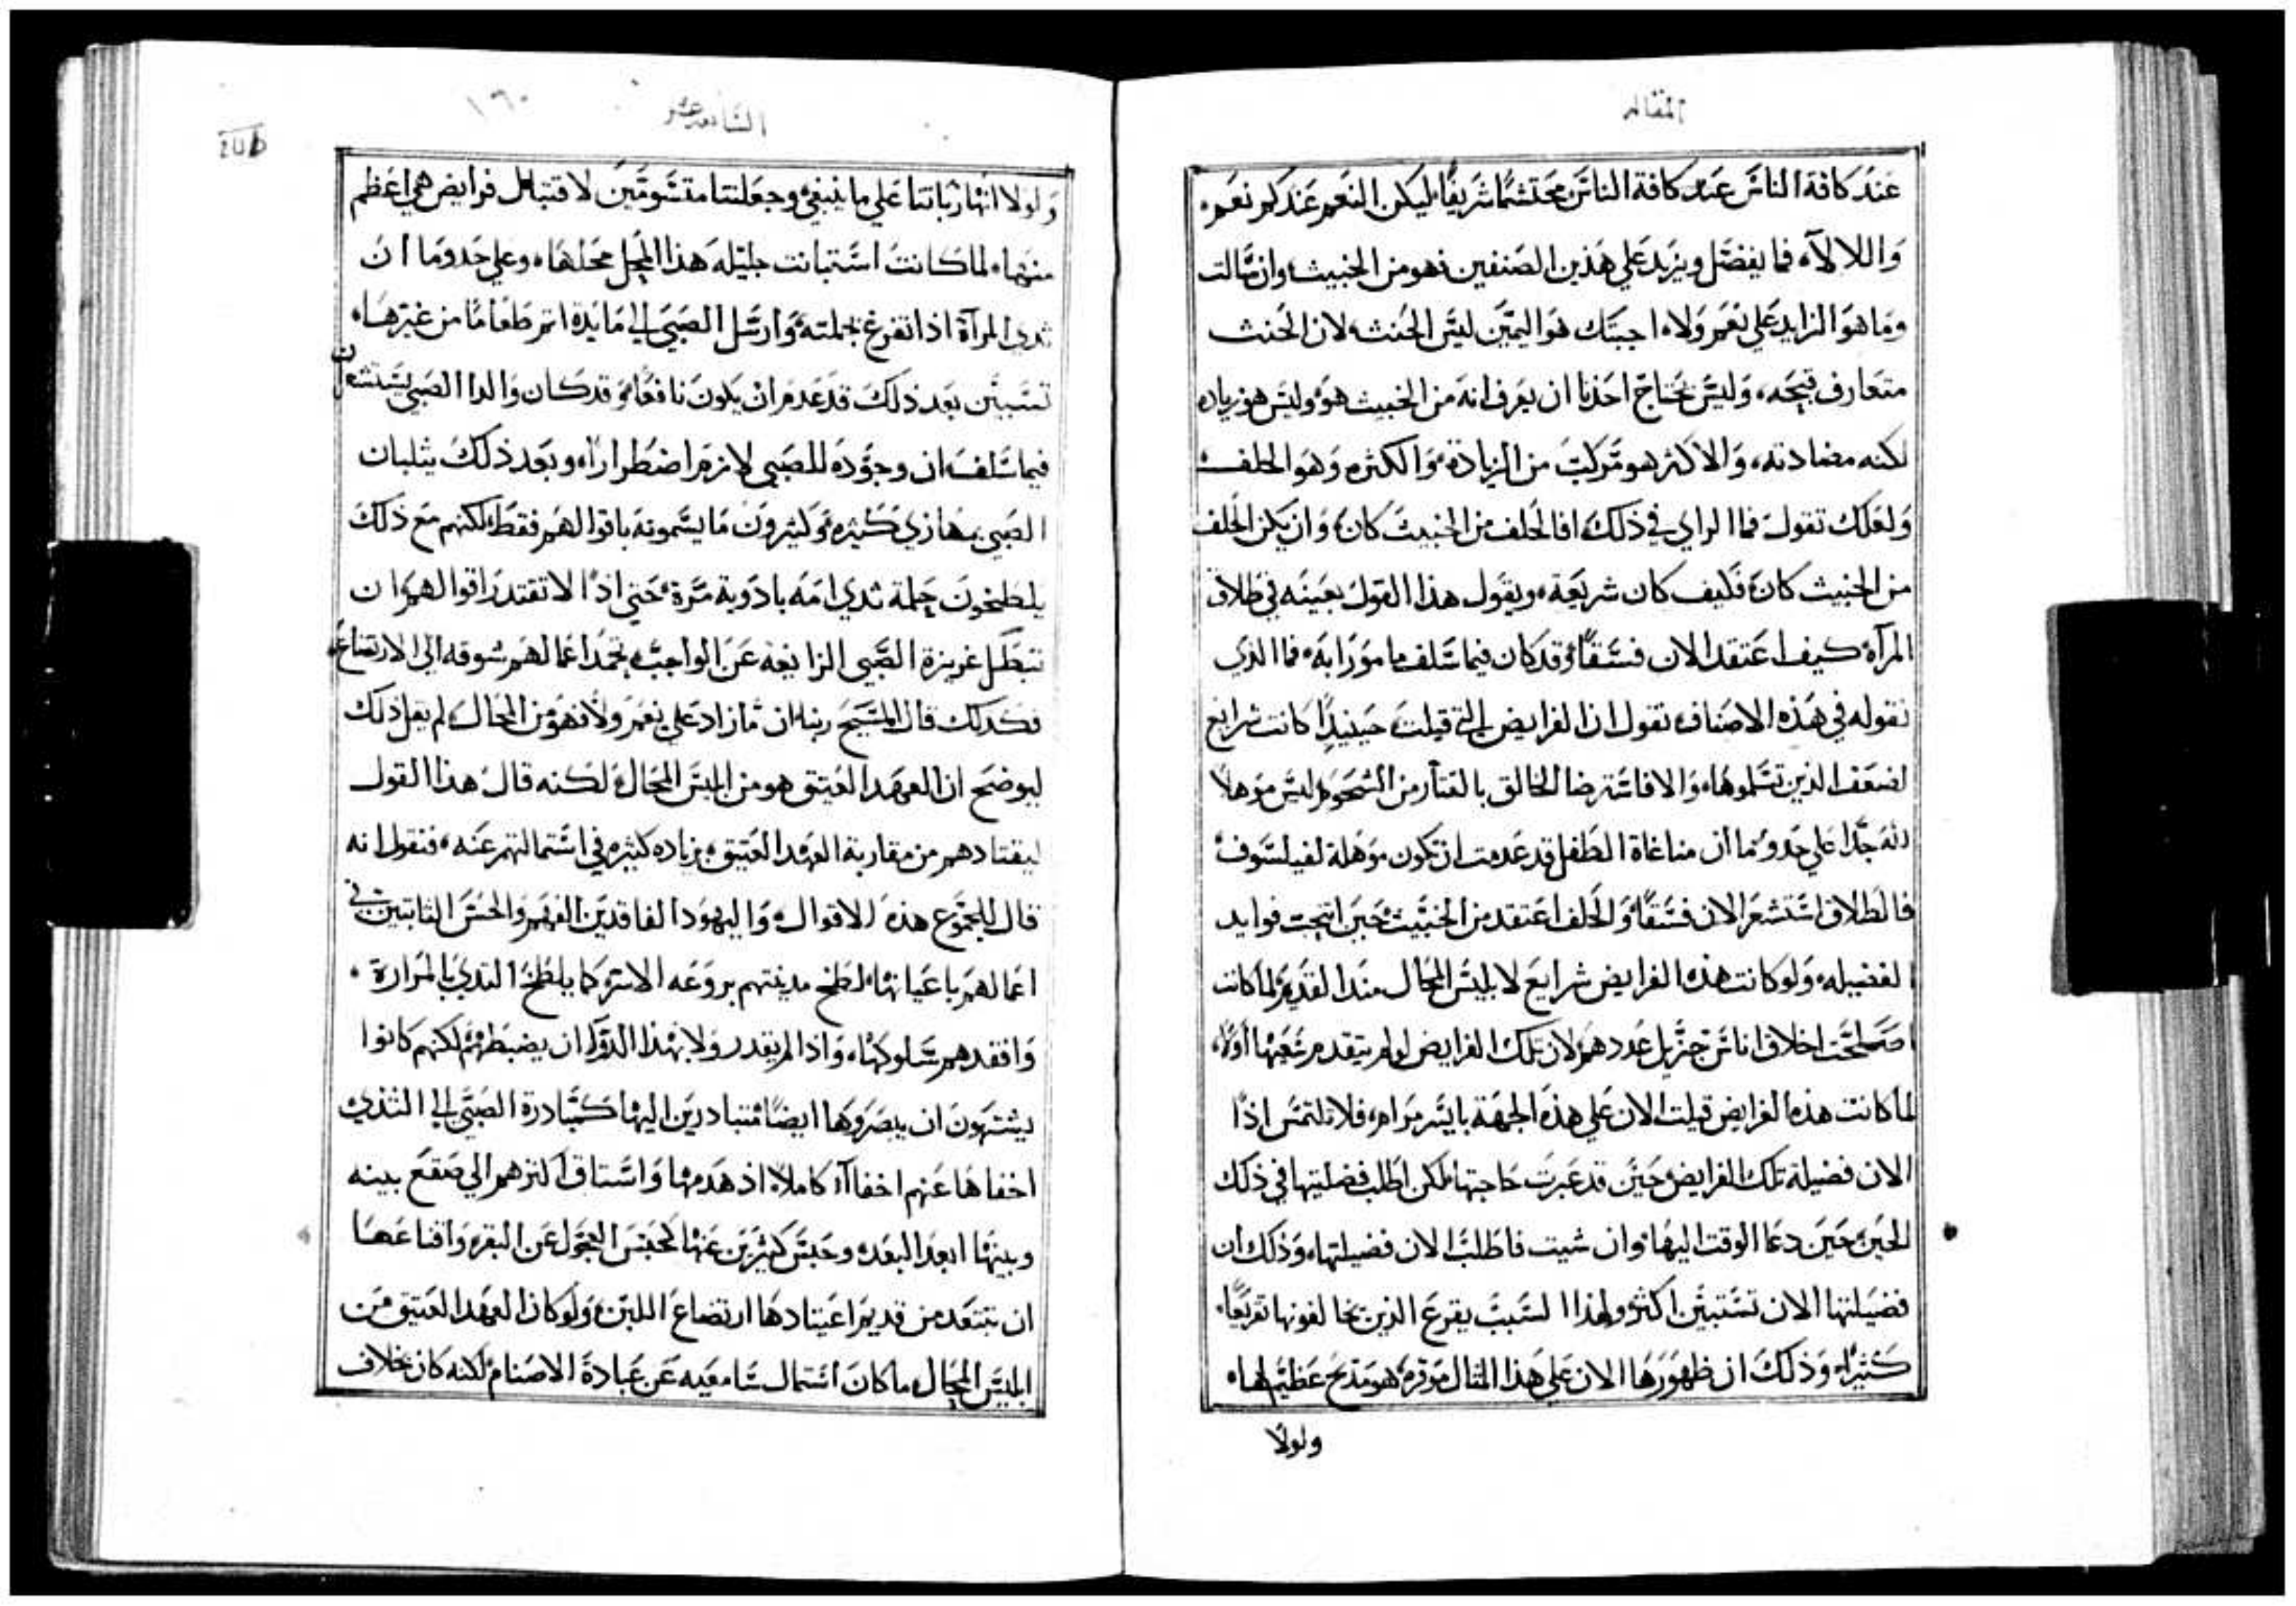 المقاله
عند كافة الناس عند كافة الناس محتشمًا شريفًا، ليكن النعم عندكم نعم،
واللا لا، فما يفضل ويزيد على هذين الصنفين فهو من الخبيث، وان سالت
وما هو الزايد على نعم ولا، اجبتك هو اليمين ليس الحنث، لان الحنث
متعارف قبحه، وليس يحتاج احدنا ان يعرف انه من الخبيث هو، وليس هو زياده
لكنه مضادته، والاكثر هو مركب من الزيادة، والكثره وهو الحلف،
ولعلك تقول فما الراي في ذلك، افالحلف من الخبيث كان، وان يكن الحلف
من الخبيث كان، فكيف كان شريعة، ويقول هذا القول بعينه في طلاق
المرآة كيف اعتقد الان فسقًا، وقد كان فيما سلف مامورًا به، فما الذي
نقوله في هذه الاصناف، نقول ان الفرايض التي قيلت حينيذٍ كانت شرايع
لضعف الذين تسلموها، والا فاسترضا الخالق بالقتار من الشحوم ليس موهلاً
لله جدًا على حدو ما ان مناغاة الطفل قد عدمت ان تكون موهلة لفيلسوف،
فالطلاق استشعر الان فسقًا، والحلف اعتقد من الخبيث حين انتجت فوايد
الفضيله، ولو كانت هذه الفرايض شرايع لابليس المحال منذ القديم، لما كانت
اصلحت اخلاق اناس جزيل عددهم، لان تلك الفرايض لو لم يتقدم شعيها اولاً،
لما كانت هذه الفرايض قيلت الان على هذه الجهة بايسر مرام، فلا تلتمس اذًا
الان فضيلة تلك الفرايض حين قد عبرت حاجتها، لكن اطلب فضيلتها في ذلك
الحين، حين دعا الوقت اليها، وان شيت فاطلب الان فضيلتها، وذلك ان
فضيلتها الان تستبين اكثر، ولهذا السبب يقرع الذين يخالفونها تقريعًا،
كثيرًا، وذلك ان ظهورها الان على هذا المثال موقره، هو مديح عظيم لها،
ولولا
التاسعه عشر
١٦٠
ولولا انها ربتنا على ما ينبغي، وجعلتنا متسومين لاقتبال فرايض هي اعظم
منها، لما كانت استبانت جليله هذا المحل محلها، وعلى حدو ما ان
ثدي المرآة اذا تفرغ بجملته، وارسل الصبي الى مايدة اتم طعامًا من غيرها،
تستبين بعد ذلك قد عدم ان يكون نافعًا، وقد كان والدا الصبي يستشعران
فيما سلف، ان وجوده للصبي لازم اضطرارًا، وبعد ذلك يثلبان
الصبي بهازي كثيره، وكثيرون ما يسمونه باقوالهم فقط، لكنهم مع ذلك
يلطخون حلمة ثدي امه بادوية مرة، حتى اذا لا تقتدر اقوالهم ان
تبطل غريزة الصبي الزايغه عن الواجب، تخمد اعمالهم شوقه الى الارتضاع،
فكذلك قال المسيح ربنا، ان ما زاد على نعم ولا، فهو من المحال، لم يقل ذلك
ليوضح ان العهد العتيق هو من ابليس المحال، لكنه قال هذا القول
ليقتادهم من مقاربة العهد العتيق، بزياده كثيره في استمالتهم عنه، فنقول انه
قال للجموع هذه الاقوال، واليهود الفاقدين الفهم والحس الثابتين في
اعمالهم باعيانها، لطخ مدينتهم بروعه الاسر، كما يلطخ الثدي بالمرارة،
وافقدهم سلوكها، واذا لم يقدر ولا بهذا الدوآ ان يضبطهم، لكنهم كانوا
يشتهون ان يبصروها ايضًا متبادرين اليها كمبادرة الصبي الى الثدي،
اخفاها عنهم اخفآ كاملاً، اذ هدمها واستاق اكثرهم الى صقع بينه
وبينها ابعد البعد، وحبس كثيرين عنها كحبس العجول عن البقر، واقناعها
ان تبتعد من قديم اعتيادها ارتضاع اللبن، ولو كان العهد العتيق من
ابليس المحال، ما كان استمال سامعيه عن عبادة الاصنام، لكنه كان بخلاف